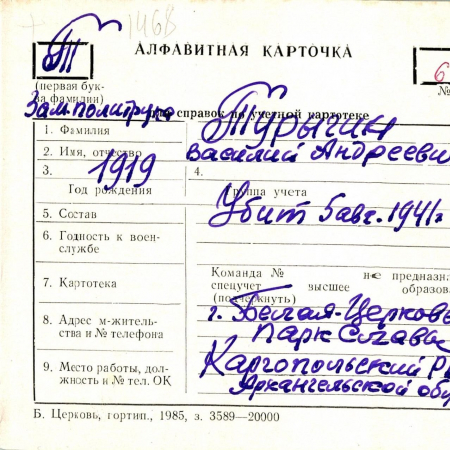 1468
АЛФАВИТНАЯ КАРТОЧКА
Т
6
(первая бук-
ва фамилии)
№
Зам. политрука
для справок по учетной картотеке
1. Фамилия
Турычин
2. Имя, отчество
Василий Андреевич
3.
1919
4.
Год рождения
Группа учета
5. Состав
Убит 5 авг. 1941г
6. Годность к воен-
службе
7. Картотека
Команда № не предназна
спецучет, высшее образова
(подчеркнуть)
8. Адрес м-житель-
ства и № телефона
г. Белая-Церковь
Парк Славы
9. Место работы, дол-
жность и № тел. ОК
Каргопольский Р
Архангельской об
Б. Церковь, гортип., 1985, з. 3589—20000